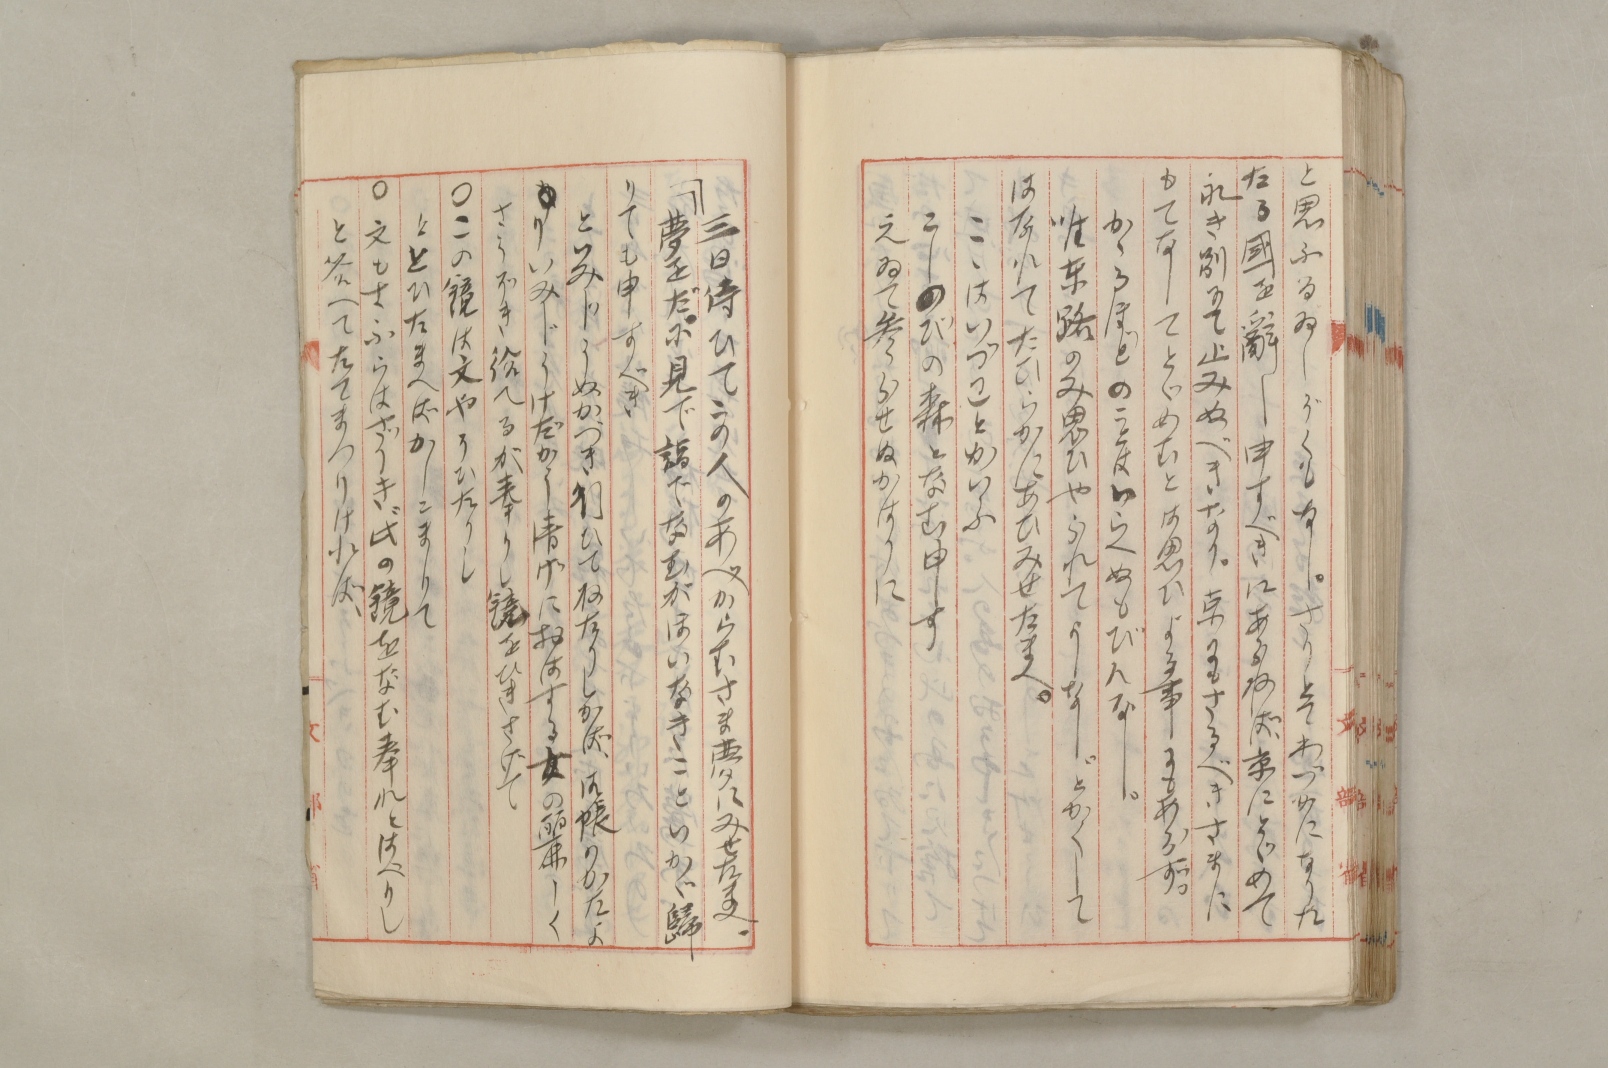 と思ふるゐしがくもなし。さりとてわづかになりた
たる國を辭し申すべきにあらねば京にとゞめて
永き別にて止みぬべきなり。京にもさるべきさまに
もてなしてとゞめむとは思ひよる事にもあらず。
かゝるほどのこと度いらへぬもびんなし。
唯東路のみ思ひやられてうしなしどかくして
はなれてたひらかにあひみせたまへ。
こゝはいづことかいふ
こしのびの森となむ申す
えゐて參らせぬかはりに
「三日侍ひてこの人のあべからむさま夢にみせたまへ。
夢をだに見で詣でなむがほいなきこといかゞ歸
りても申すべき
といみじうぬかづき行ひてねたりしかば、御帳のかたよ
りいみじうけだかう清げにおはする女の麗しく
さうぞき給へるが奉りし鏡をひきさげて
〇この鏡は文やそひたりし
ととひたまへばかしこまりて
〇文もさふらはざりき此の鏡をなむ奉れとはべりし
と答へてたてまつりければ、
文部省